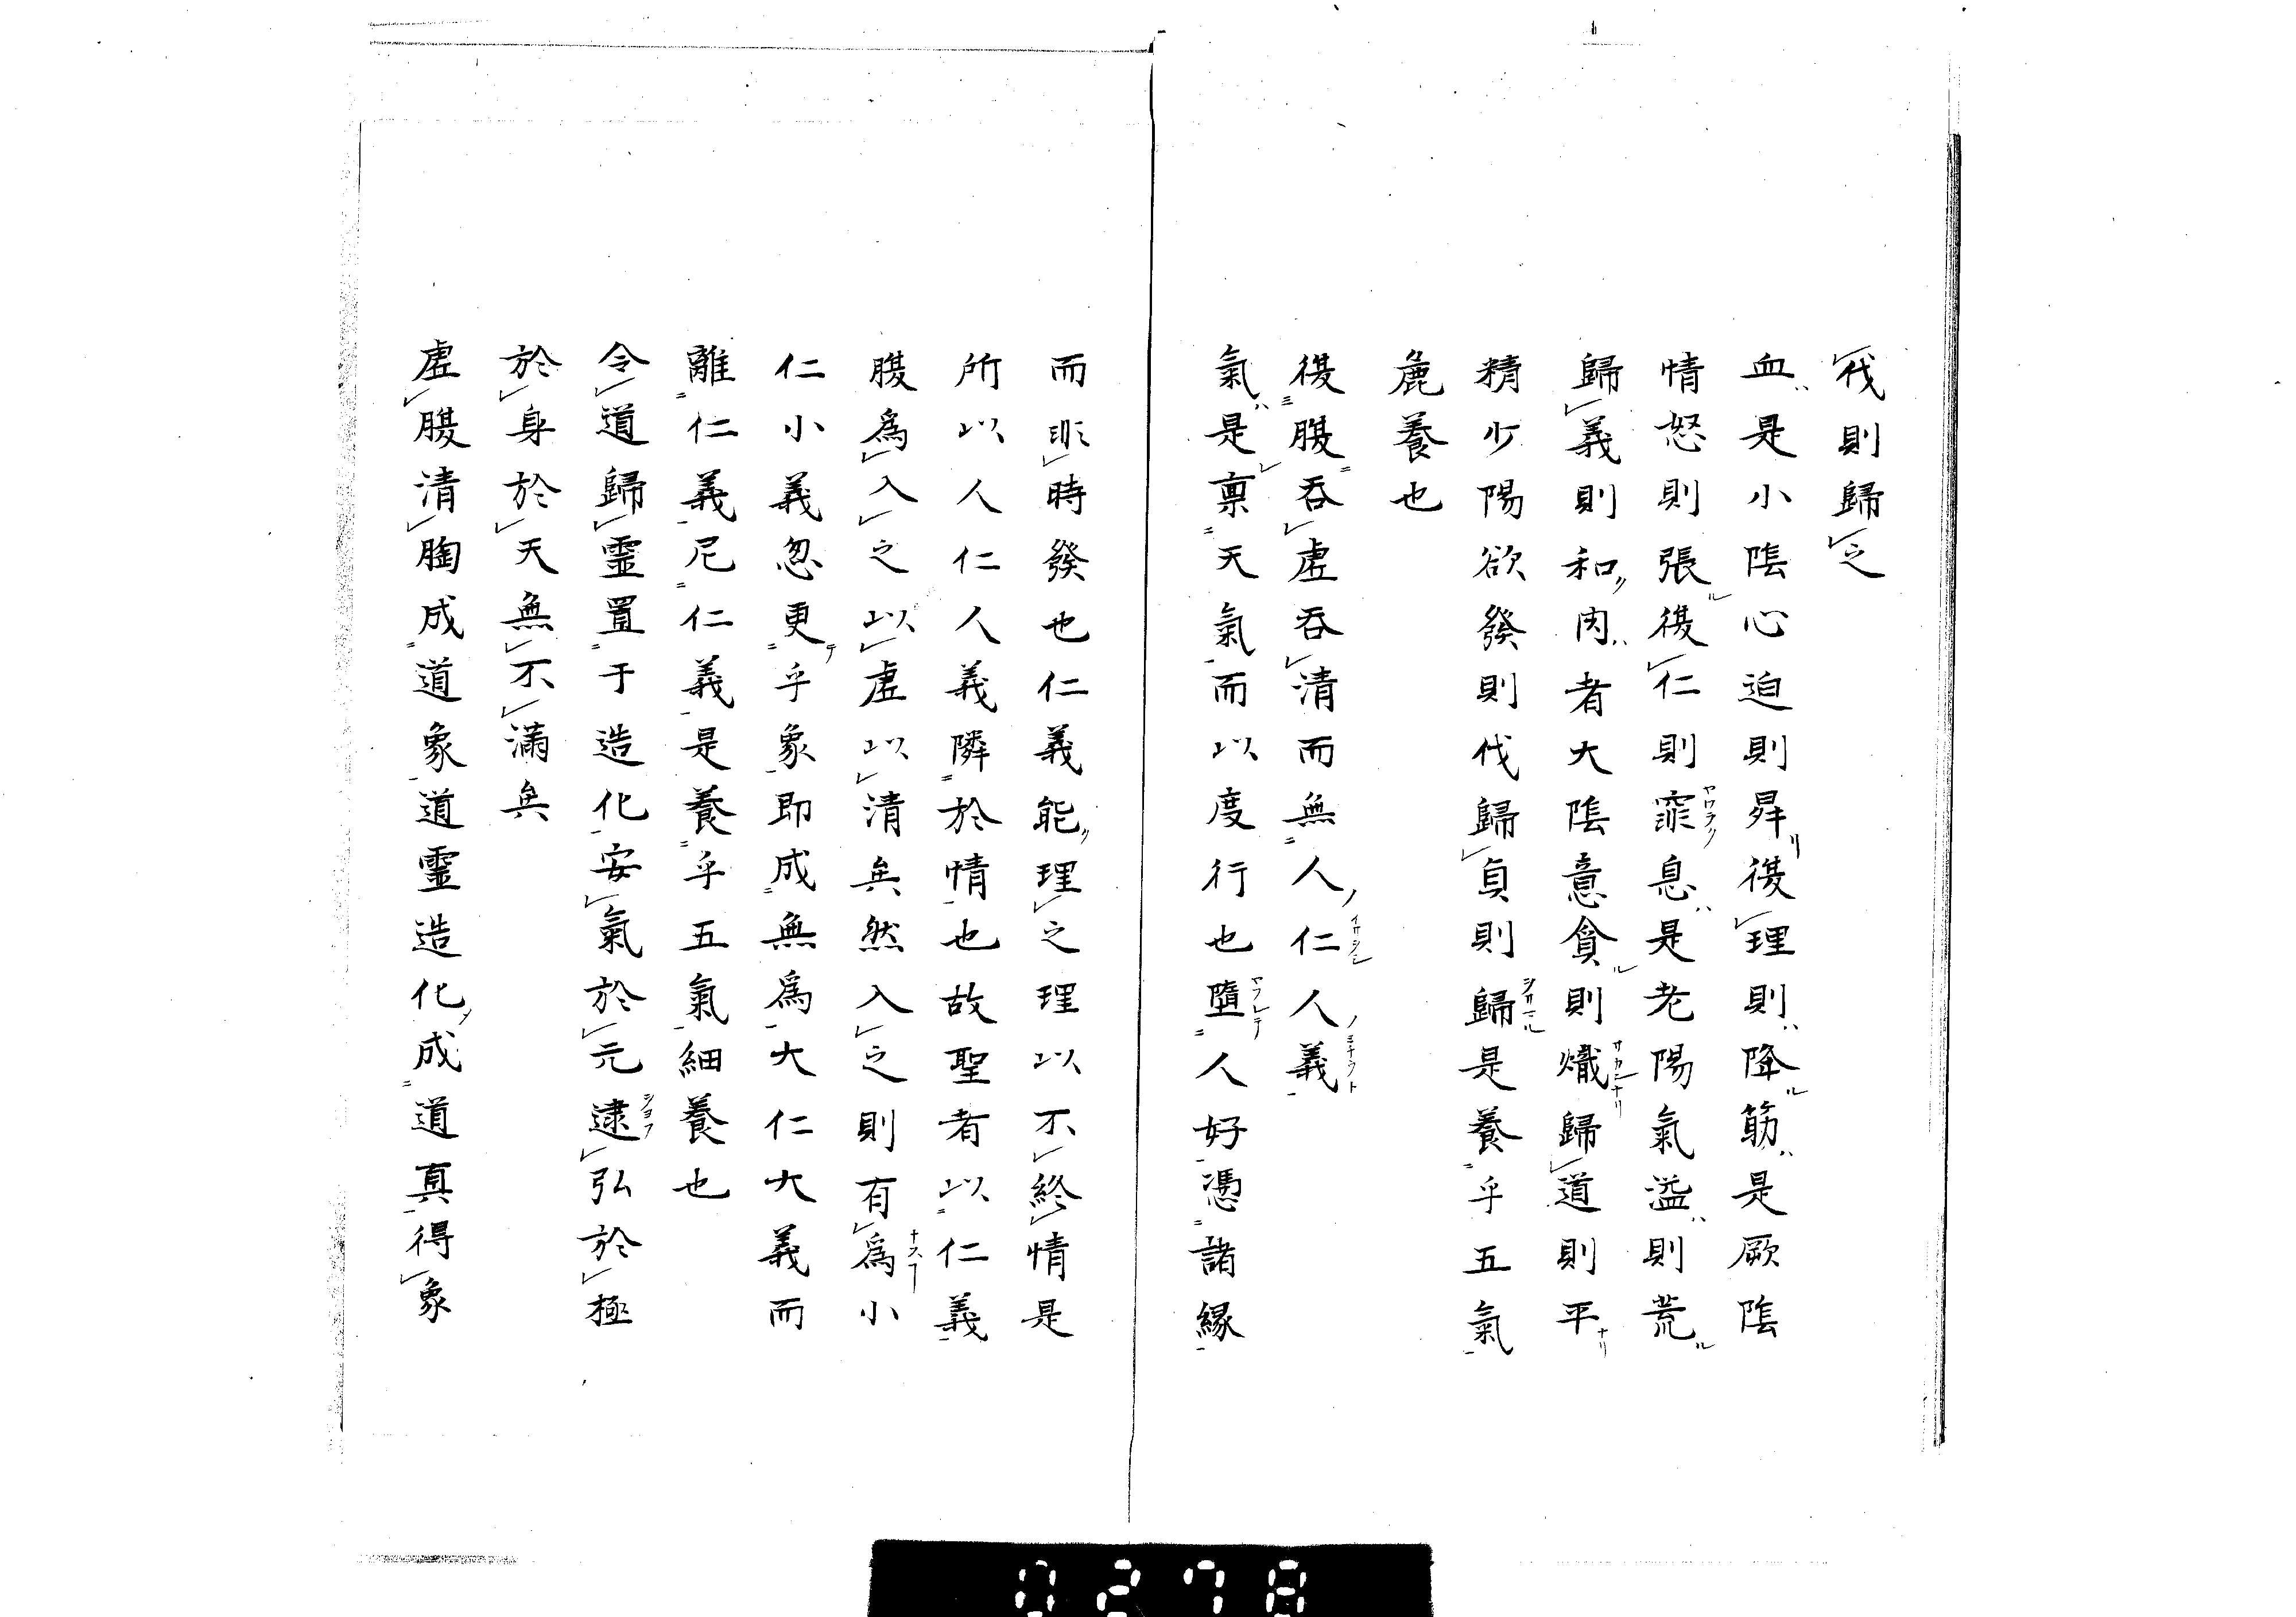 伐則歸之
血是小陰心迫則昇復理則降筋是厥陰
情怒則張復仁則窕息是老陽氣溢則荒
歸義則和肉者大陰意貪則熾歸道則平
精少陽欲發則伐歸貞則歸是養乎五氣
麁養也
復腹吞虛吞清而無人仁人義
氣是稟天氣而以度行也墮人好憑諸緣
而非時發也仁義能理之理以不終情是
所以人仁人義隣於情也故聖者以仁義
腹爲入之以虛以清矣然入之則有爲小
仁小義忽更乎象即成無爲大仁大義而
離仁義尼仁義是養乎五氣細養也
令道歸靈置于造化安氣於元逮弘於極
於身於天無不滿矣
虛腹清胸成道象道靈造化成道真得象
0278